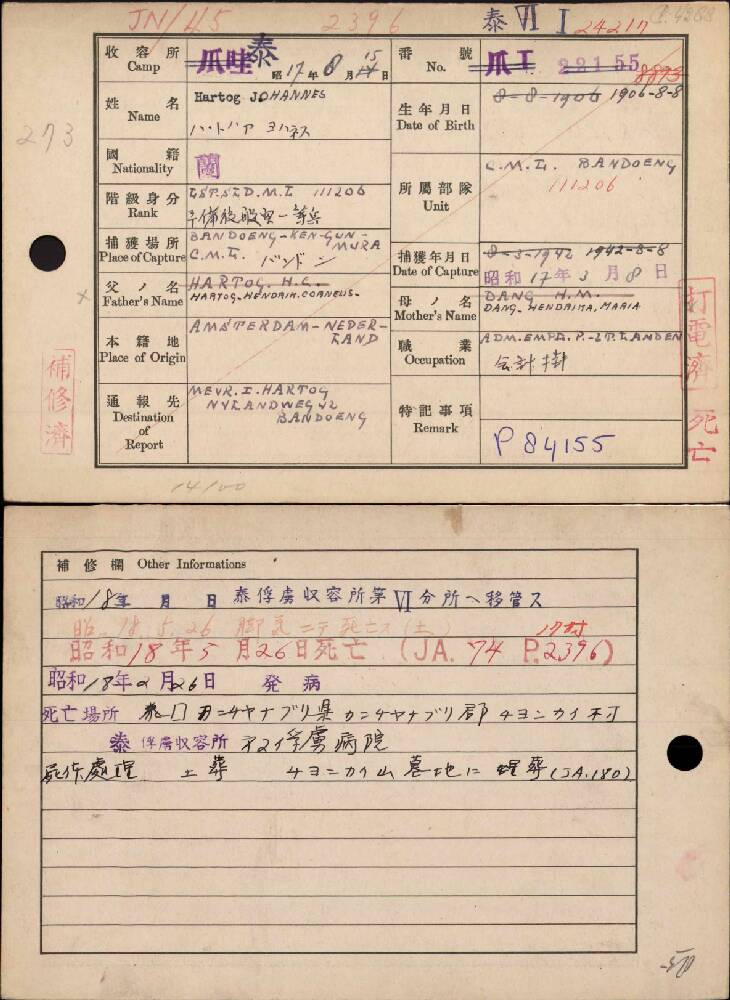 JN/45 2396 泰 VI I 24217
収容所 Camp 爪哇 泰 昭17年8月15日
番號 No. 爪I 22155 8893
273
姓名 Name Hartog JOHANNES
ハルトハア ヨハネス
生年月日 Date of Birth 8-8-1906 1906-8-8
國籍 Nationality 蘭
階級身分 Rank LST.SLD.M.L 111206
予備役 一等兵
所屬部隊 Unit C.M.L. BANDOENG
111206
捕獲場所 Place of Capture BANDOENG-KEN-GUN-MURA
C.M.L. バンドン
捕獲年月日 Date of Capture 8-3-1942 1942-8-8
昭和17年3月8日
父ノ名 Father's Name HARTOG. H.C.
HARTOG-HENDRIK.CORNELIS-
母ノ名 Mother's Name DANG H.M.
DANG. HENDRIKA, MARIA
本籍地 Place of Origin AMSTERDAM-NEDER-
LAND
職業 Occupation ADM.EMPL.P.-LT.LANDEN
会計掛
通報先 Destination of Report MEVR. I. HARTOG
NYLANDWEG 42
BANDOENG
特記事項 Remark
P 84155
補修済
打電済 死亡
14/00
補修欄 Other Informations
昭和18年 月 日 泰俘虜収容所第VI分所ヘ移管ス
昭. 18.5.26 脚気ニテ死亡ス(土)
昭和18年5月26日死亡 (JA. 74 P.2396)
昭和18年2月26日 発病
死亡場所 泰国カンチヤナブリ県カンチヤナブリ郡チヨンカイ村
泰俘虜収容所 俘虜病院
屍体處理 土葬 チヨンカイ山墓地に埋葬(JA.180)